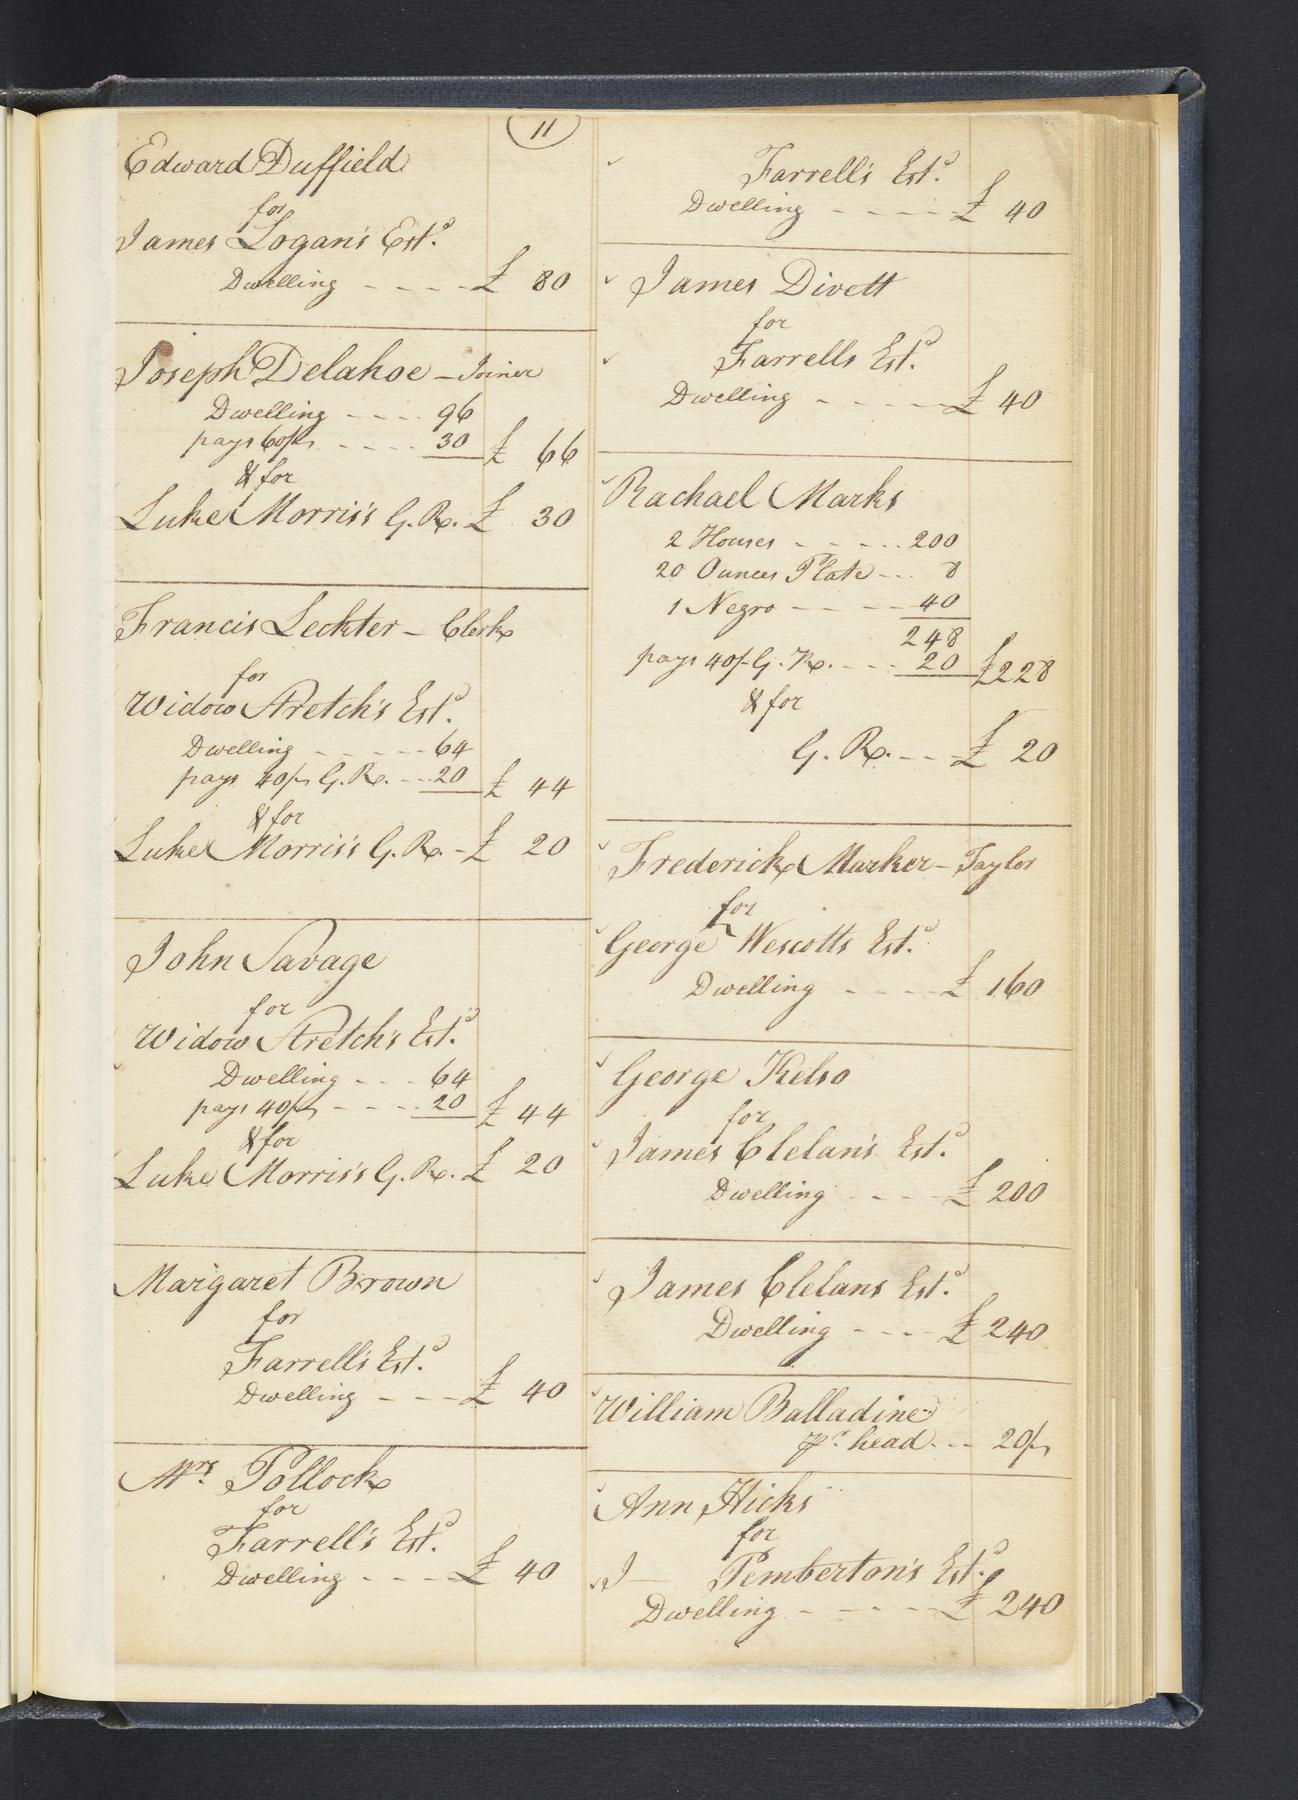 11
Edward Duffield
for
James Logan's Estd.
Dwelling - - - - £ 80
Joseph Delahoe - Joiner
Dwelling - - - - 96
pays 60/s - - - - 30 £ 66
& for
Luke Morris's G. R. £ 30
Francis Leckter - Clerk
for
Widow Stretch's Estd.
Dwelling - - - - - 64
pays 40/s G. R. - - - 20 £ 44
& for
Luke Morris's G. R. - £ 20
John Savage
for
Widow Stretch's Estd.
Dwelling - - - 64
pays 40/s - - - - 20 £ 44
& for
Luke Morris's G. R. £ 20
Margaret Brown
for
Farrell's Estd.
Dwelling - - - £ 40
Mrs. Pollock
for
Farrell's Estd.
Dwelling - - - £ 40
Farrell's Estd.
Dwelling - - - - £ 40
James Divett
for
Farrells Estd.
Dwelling - - - - - £ 40
Rachael Marks
2 Houses - - - - - 200
20 Ounces Plate - - - 8
1 Negro - - - - 40
248
pays 40/- G. R. - - - 20 £ 228
& for
G. R. - - £ 20
Frederick Marker - Taylor
for
George Wescotts Estd.
Dwelling - - - - £ 160
George Kelso
for
James Clelan's Estd.
Dwelling - - - - £ 200
James Clelans Estd.
Dwelling - - - - £ 240
William Balladine
pr. head - - - 20/s
Ann Hicks
for
J— Pemberton's Estd.
Dwelling - - - - - £ 240